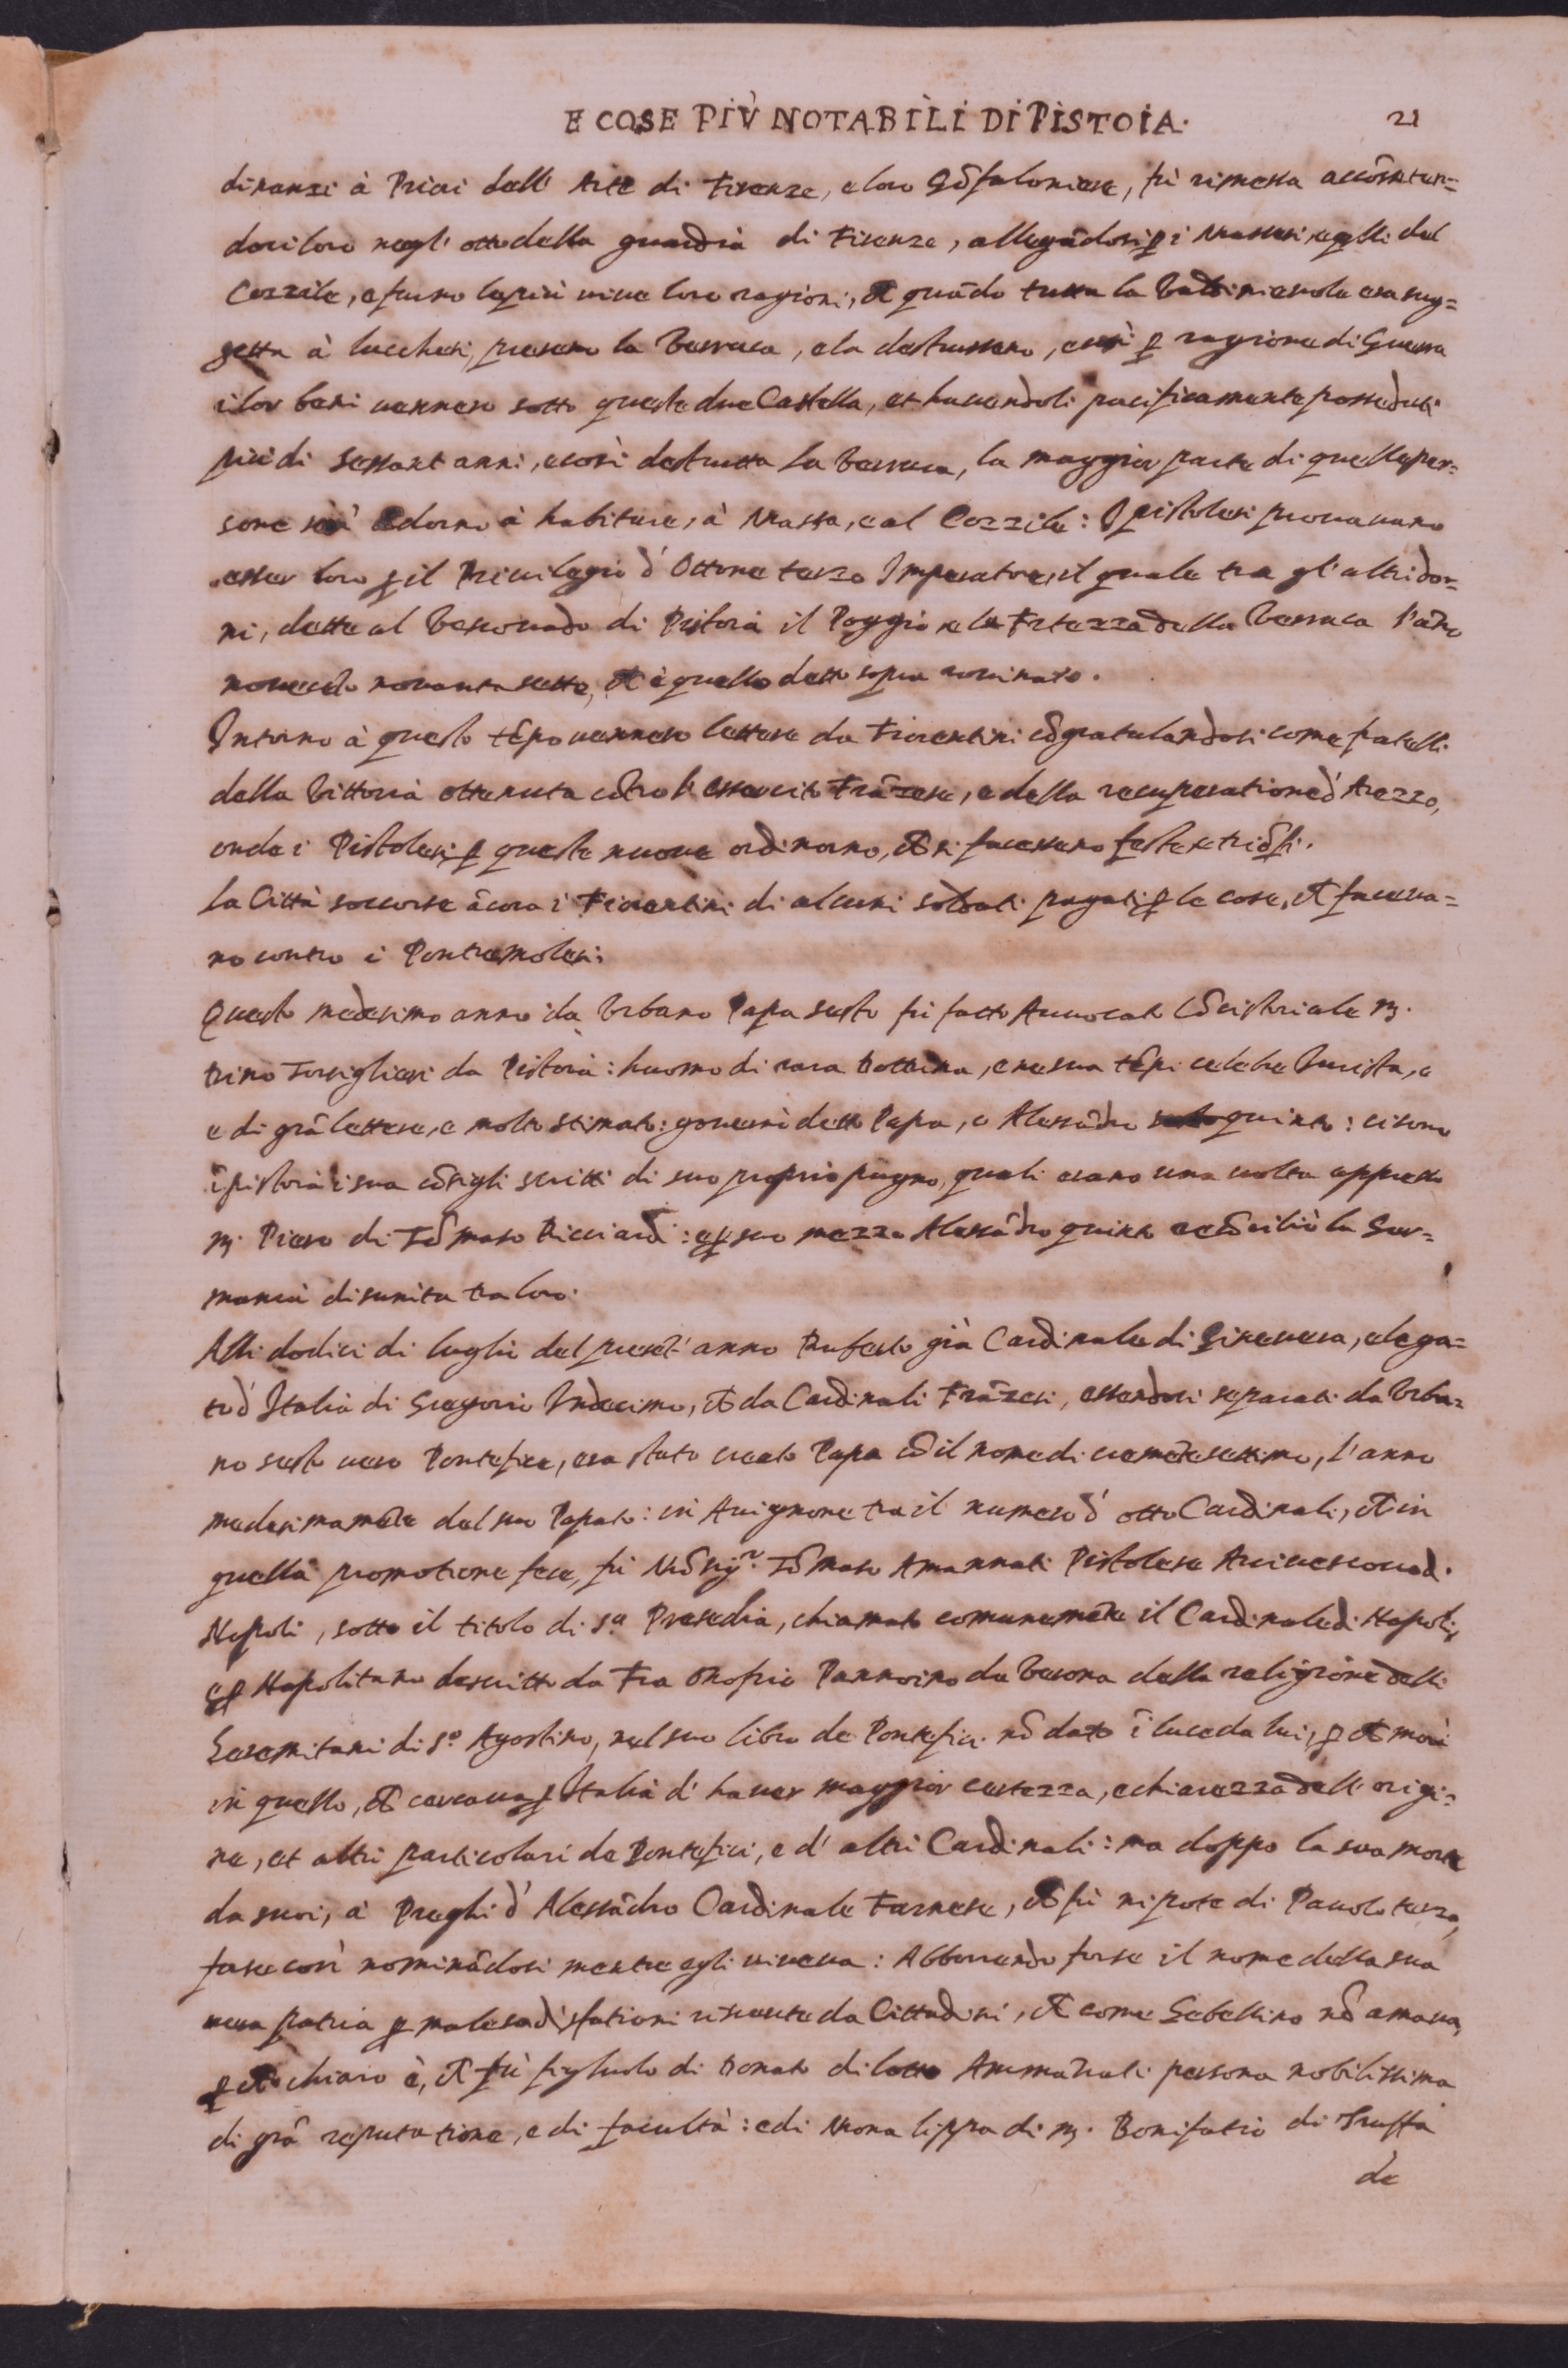 E COSE PIÙ NOTABILI DI PISTOIA. 21
dinanzi à Priori dell' Arte di Firenze, e loro Gõfaloniere, fù rimessa accõmeten=
dosi loro negl' otto della guardia di Firenze, allegãdosi ꝑ i Massesi, e qlli del
Cozzile, e furno le più viue loro ragioni, ch̃ quãdo tutta la Valdinieuole era sug=
getta à lucchesi, presero la Verruca, e la destrussero, e così ꝑ ragione di Guerra
i lor beni vennero sotto queste due Castella, et hauendoli pacificamente posseduti
più di sessant anni, e così destrutta la Verruca, la maggior parte di quelle per=
sone andorno à habitare, à Massa, e al Cozzile: I pistolesi prouauano
esser loro ꝑ il Priuilegio d' Ottone terzo Imperatore, il quale tra gl' altri do=
ni, dette al Vescouado di Pistoia il Poggio, e la Fortezza della Verruca l'ãno
nouecẽto nouanta sette, ch̃ è quello detto sopra rouinato.
Intorno à questo tẽpo vennero lettere da Fiorentini cõgratulandosi come fratelli
della Vittoria ottenuta cõtro l' essercito Frãzese, e della recuperatione d' Arezzo,
onde i Pistolesi ꝑ queste nuoue ordinorno, ch̃ si facessero feste, e triõfi.
La Città soccorse ãcora i Fiorentini di alcuni soldati pagati, ꝑ le cose, ch̃ faceua=
no contro i Pontremolesi.
Questo medesimo anno da Vrbano Papa sesto fù fatto Auuocato Cõcistoriale M.
Dino Torsigliesi da Pistoia: huomo di rara dottrina, e ne sua tẽpi celebre Iurista, e
e di grã lettere, e molto stimato: gouernò detto Papa, e Alessãdro quinto: ci sono
ĩ pistoia i sua cõsigli scritti di suo proprio pugno, quali erano una uolta appresso
M. Piero di Tõmaso Ricciardi: e ꝑ suo mezzo Alessãdro quinto recõciliò la Ger=
mania disunita tra loro.
Alli dodici di luglio del preset' anno Ruberto già Cardinale di Gineuera, e lega=
to d' Italia di Gregorio Vndecimo, ch̃ da Cardinali Frãzesi, essendosi separati da Vrba=
no sesto uero Pontefice, era stato creato Papa cõ il nome di cremẽte settimo, l'anno
medesimamẽte del suo Papato: in Auignone tra il numero d' otto Cardinali, ch̃ in
quella promotione fece, fù Mõsig.r Tõmaso Amannati Pistolese Arciuescouo d.
Napoli, sotto il titolo di s.a Presedia, chiamato comunemẽte il Cardinale di Napoli,
e ꝑ Napolitano descritto da Fra Onofrio Pannoino da Verona della religione delli
Heremitani di s.o Agostino, nel suo libro de Pontefici nõ dato ĩ luce da lui, ꝑ ch̃ morì
in quello, ch̃ cercaua ꝑ Italia d' hauer maggior certezza, e chiarezza dell' origi=
ne, et altri particolari de Pontefici, e d' altri Cardinali: ma doppo la sua morte
da suoi, à Preghi d' Alessãdro Cardinale Farnese, ch̃ fù nipote di Pauolo terzo,
forse così nominãdosi mentre egli uiueua: Abborrendo forse il nome della sua
uera patria ꝑ male sadisfationi riceute da Cittadini, ch̃ come Gebellino nõ amaua,
ꝑ ch̃ chiaro è, ch̃ fù figliuolo di Donato di lotto Ammãnati persona nobilissima
di grã reputatione, e di facultà: e di Mona lippa di M. Bonifatio di Truffa
de